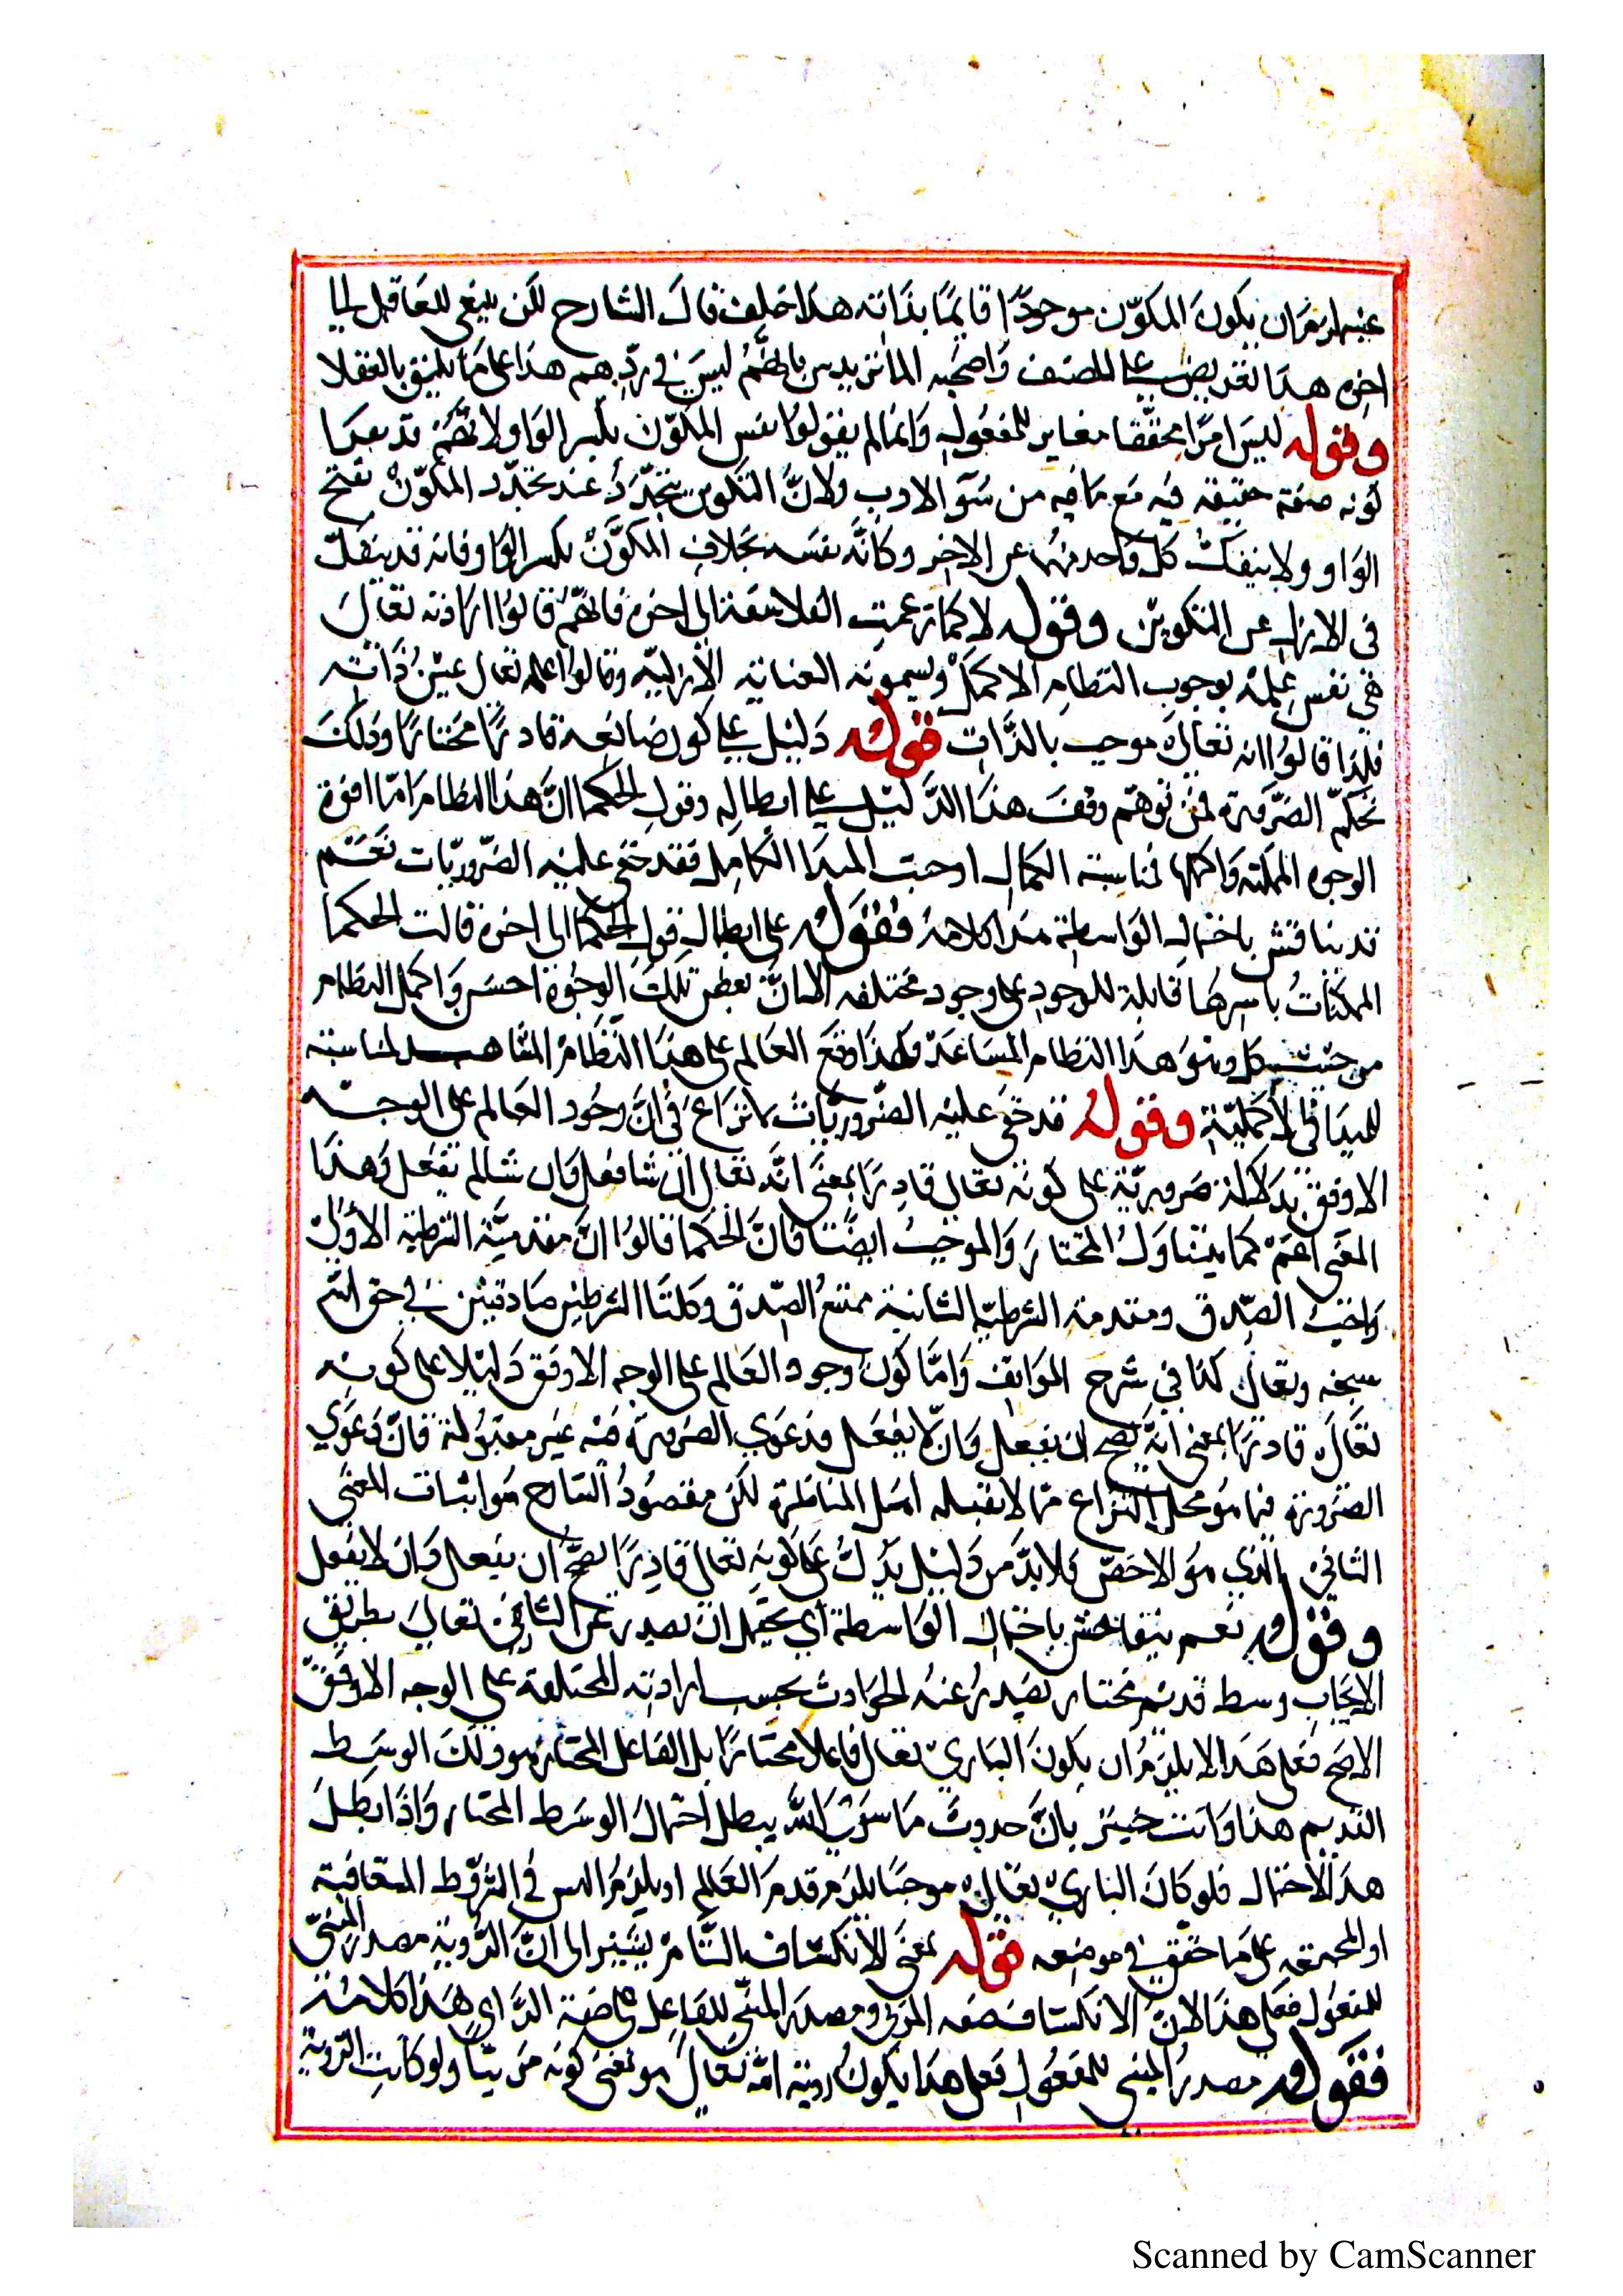 عينه لزم ان يكون المكوّن موجودًا قايمًا بذاته هذا خلف قال الشارح لكن ينبغي للعاقل الى
اخره هذا تعريض على المصنف واصحبه الماتريدين بانهم ليس في ردهم هذا على ما يليق بالعقلا
وقوله ليس امرًا محققا مغاير للمفعول وانما لم يقولوا نفس المكوّن بكسر الواو لانهم
كونه صفة حقيقة فيه مع ما فيه من سوّ الادب ولانّ التكوين يتجدّد عند تجدّد المكوّن بفتح
الواو ولا ينفكّ كل واحد منهما عن الاخر وكانّه نفسه بخلاف المكوّن بكسر الواو فانه قد ينفكّ
في الازل عن التكوين وقوله لا كما زعمت الفلاسفة الى اخره فانهم قالوا ارادته تعالى
هي نفس علمه بوجوب النظام الاكمل ويسمونه العناية الازلية وقالوا علمه تعالى عين ذاته
فلهذا قالوا انه تعالى موجب بالذات قوله دليل على كون صانعه قادرًا مختارًا وذلك
بحكم الضرورة فمن توهم وقف هذا الدليل على ابطاله وقول الحكما انّ هذا النظام
الوجوه الممكنة واكملها فناسبته الكمال اوجبت المبدا الكامل فقد خفي عليه الضروريات نعم
قد يناقش باحتمال الواسطة هذا كلامه فقوله على ابطال قول الحكما الى اخره قالت الحكما
الممكنات باسرها قابلة للوجود على وجود مختلفه الا انّ بعض تلك الوجوه احسن واكمل النظام
من حيث كل وهو هذا النظام المشاهد ولهذا وقع العالم على هذا النظام المشاهد لمناسبته
للمبدا في الاكملية وقوله قد خفي عليه الضروريات لا نزاع في انّ وجود العالم على الوجه
الاوفق يدل دلالة ضرورية على كونه تعالى قادرًا بمعنى انّه تعالى ان شا فعل وان شا لم يفعل وهذا
المعنى اعم كما يتناول المختار والموجب ايضًا فانّ الحكما قالوا انّ مقدمية الشرطية الاولى
واجب الصدق ومقدمة الشرطية الثانية ممتنع الصدق وكلتا الشرطين صادقتين في حق الله
سبحنه وتعالى كذا في شرح المواقف وامّا كون وجود العالم على الوجه الاوفق دليلا على كونه
تعالى قادرًا بمعنى انّه يصح ان يفعل وان لا يفعل فدعوي الضرورة فيه غير مقبولة فانّ دعوي
الضرورة فيما هو محل النزاع مما لا يقبله اهل المناظرة لكن مقصود الشارح هو اثبات المعنى
الثاني الذي هو الاخصّ فلا بدّ من دليل يدلّ على كونه تعالى قادرًا يصح ان يفعل وان لا يفعل
وقوله نعم يناقش باحتمال الواسطة اي يحتمل ان يصدر عن تعالى بطريق
الايجاب وسط قديم مختار يصدر عنه الحوادث بحسب ارادته المختلفة على الوجه الاوفق
الاصح فعلى هذا لا يلزم ان يكون الباري تعالى فاعلا مختارًا بل الفاعل المختار هو ذلك الوسط
القديم هذا وانت خبير بانّ حدوث ما سوى الله يبطل احتمال الوسط المختار واذا بطل
هذا الاحتمال فلو كان الباري تعالى موجبًا يلزم قدم العالم او يلزم التس في الشروط المتعاقبة
او المجتمعه على ما حقق في موضعه قوله بمعنى الانكشاف التّام يشير الى انّ الرّوية مصدر المبني
للمفعول فعلى هذا لانّ الانكشاف صفه المرئي ومصدر المبني للفاعل على صفة الرّاي هذا كلامه
فقوله مصدر المبني للمفعول فعلى هذا يكون روية الله تعالى هو بمعنى كونه مرئيًا ولو كانت الروية
Scanned by CamScanner